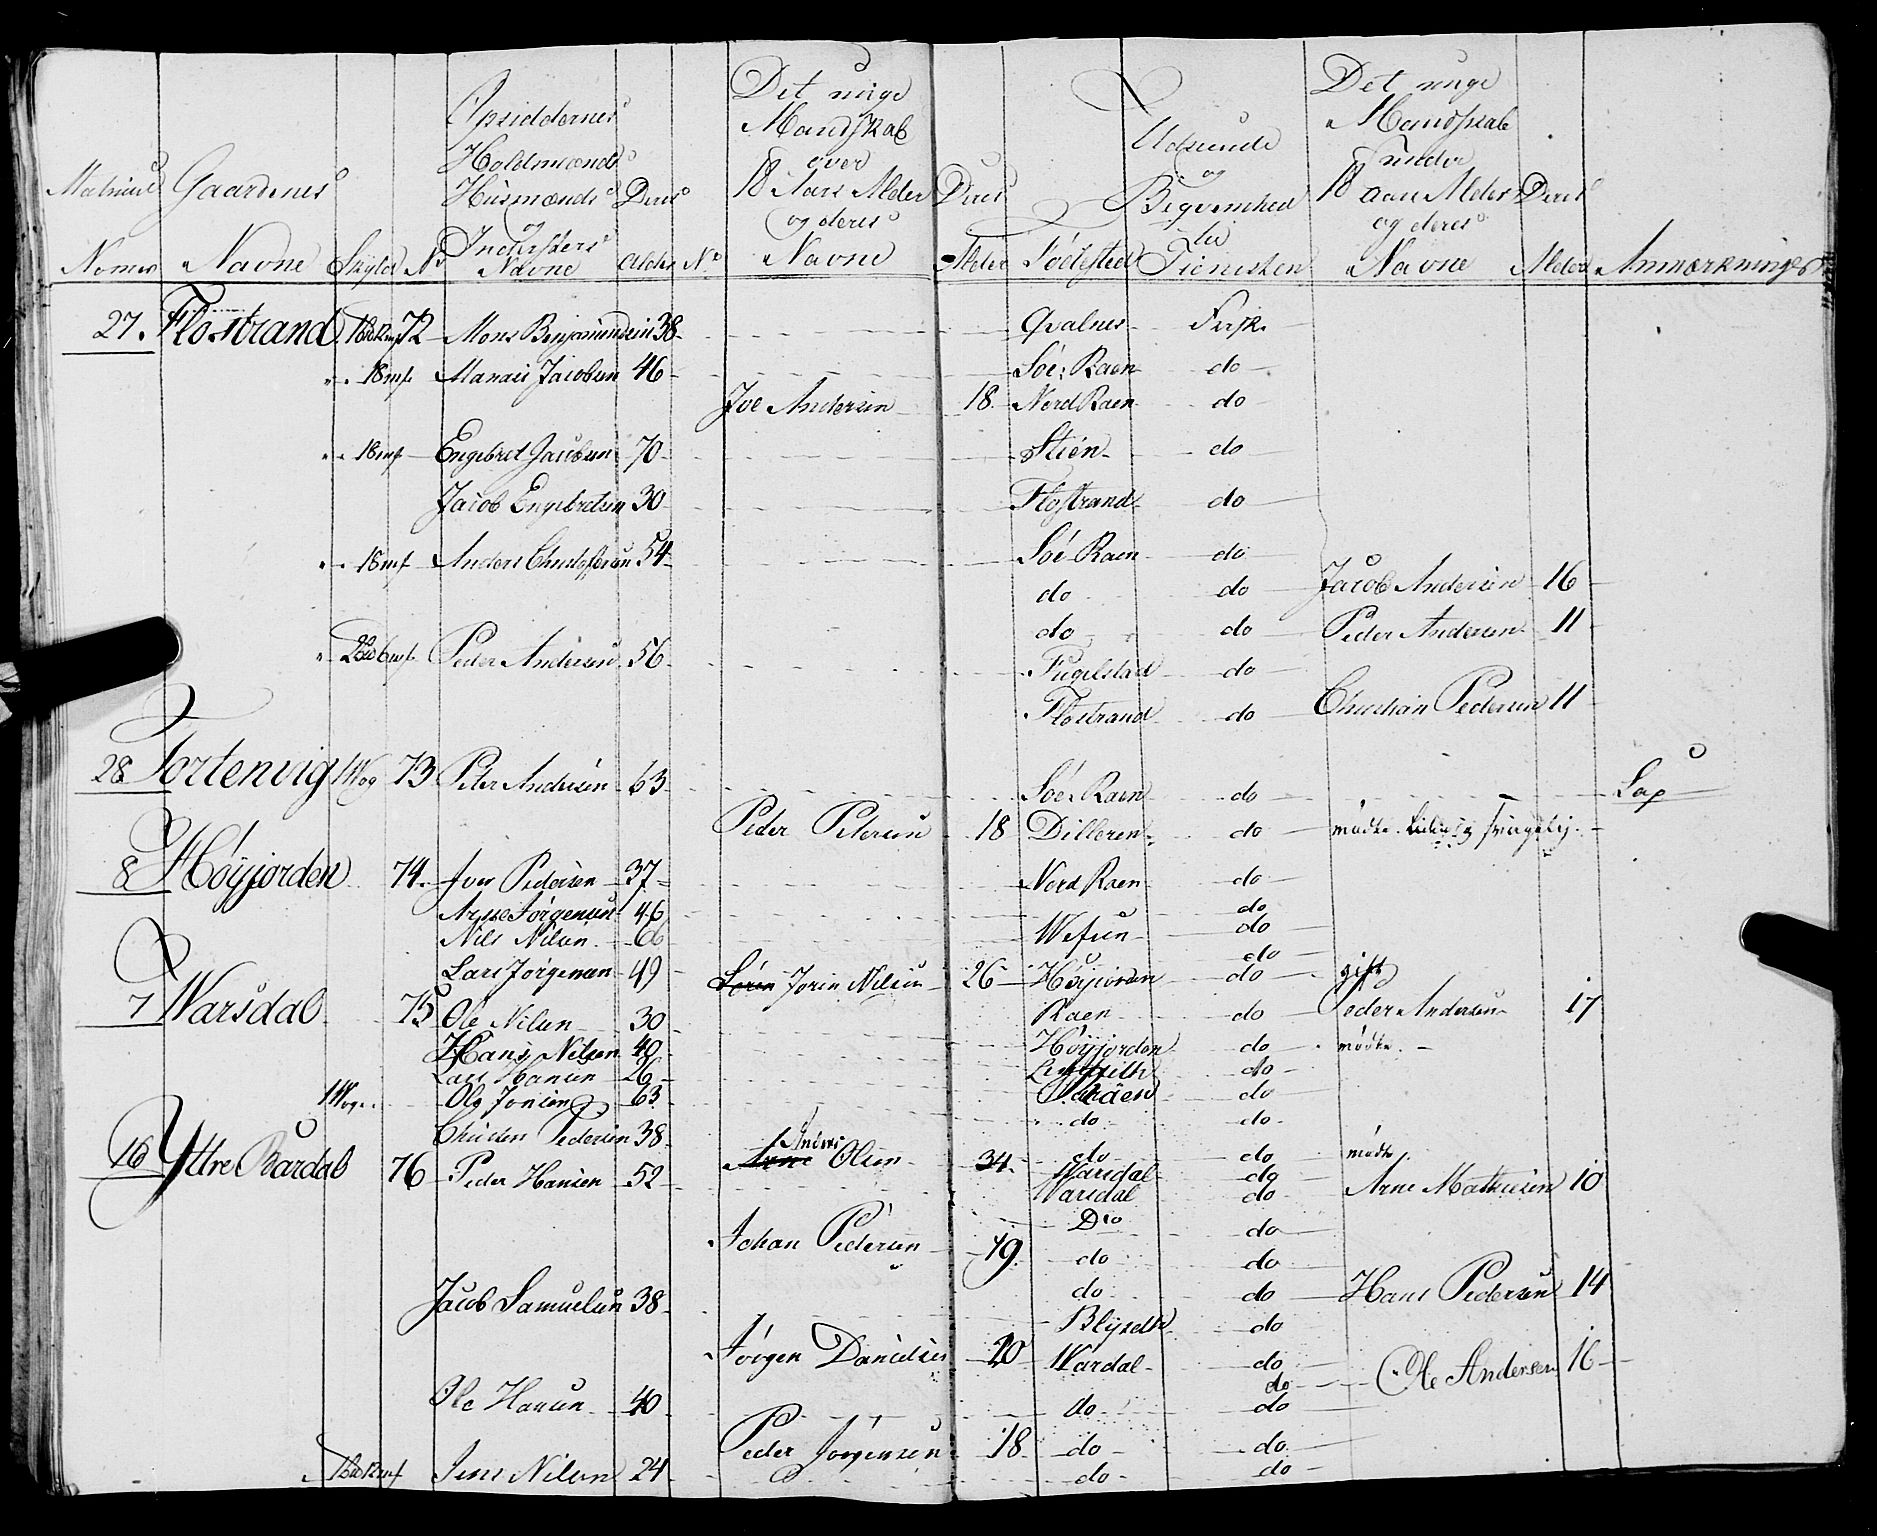 Matricul Nomer
Gaardenes Navne
Skyld
No
Opsiddernes Holdsmænds Huusmænds og Inderster's Navne
Deres Alder
No
Det unge Mandskab over 18 Aars Alder og deres Navne
Deres Alder
Födested
Udseende og Beqvemhed til Tienesten
Det unge Mandskab under 18 aars Alder og deres Navne
Deres Alder
Anmærkninger
27. Flostrand 72 Mons Benjaminsen 38 Qvalnes Frisk
18mk Jacobsen 46 Söe Raen do
Joe Andersen 18 Nord Raen do
18mk Engebret Jacobsen 70 Stien do
Jacob Engebretsen 30 Flostrand do
18mk Anders Christophersen 54 Söe Raen do
do do Jacob Andersen 16
do do Peder Andersen 11
Peder Andersen 56 Fugelstad do
Flostrand do Christian Pedersen 11
28 Tortenvig 1 Wog 73 Peter Andersen 63 Söe Raen do Lap
Peder Petersen 18 Dilleren do mödte
8 Höyjorden 74 Iver Pedersen 37 Nord Raen do
Arne Jörgensen 46 do
Nils Nilsen 66 Wefsen do
do
Lars Jörgensen 49 Sören Jorin Nilsen 26 Höyjorden do gift
7 Warsdal 75 Ole Nilsen 30 Raen do Peder Andersen 17
Hans Nilsen 40 Höyjorden do mödte
Lars Hansen 26 do
1 Wog Ole Jonsen 63 Raen do
Christen Pedersen 38 do do
Anders
16 Yttre Bardal 76 Peder Hansen 52 Arne Olsen 34 do do mödte
Warsdal do
Warsdal do Arne Mathiesen 10
Do do
Johan Pedersen 19 do do
Jacob Samuelsen 38 do do Hans Pedersen 14
Blyseth do
Jörgen Danielsen 20 Wardal do
do Ole Andersen 16
Ole Hansen 40 do do
Peder Jörgensen 18 do do
Jens Nilsen 24 do do